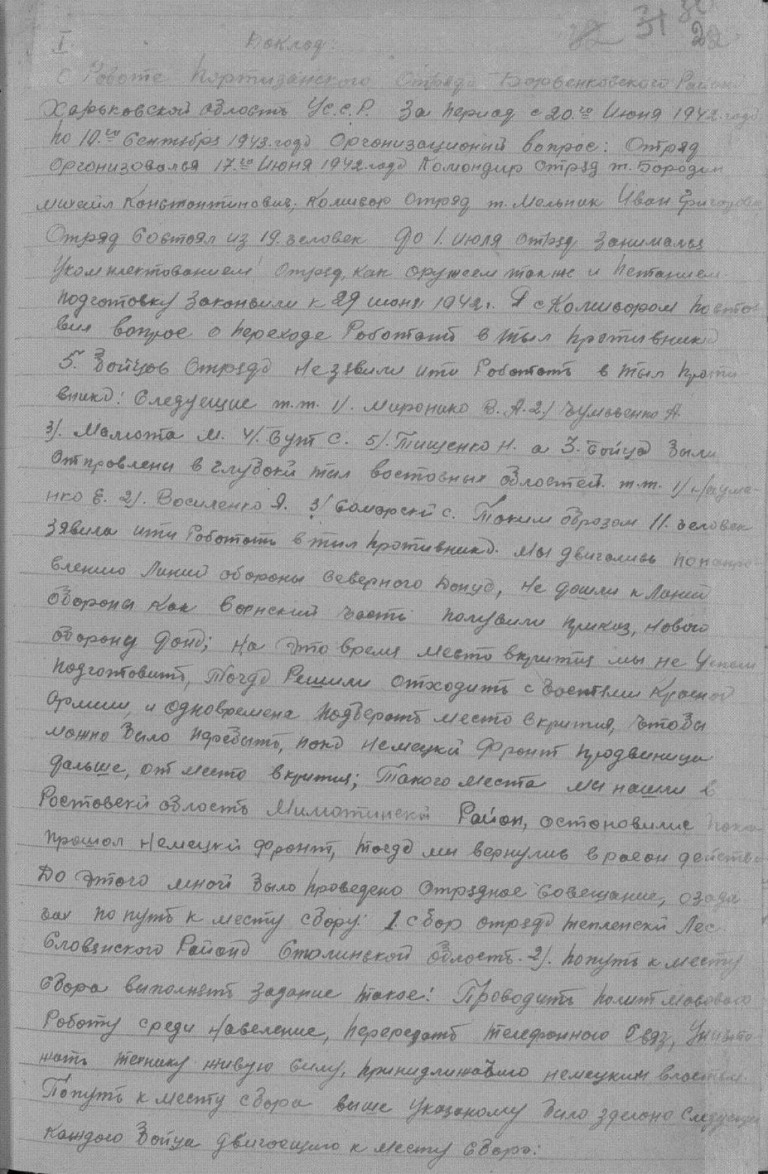 I
31
22
Доклад:
О Работе Партизанского Отряда Барвенковского Района
Харьковской область У.С.С.Р. За период с 20.го Июня 1942. года
по 10.го Сентября 1943. года Организационый вопрос: Отряд
Организовался 17.го Июня 1942. года Командир отряд т. Бородин
михаил Константинович; Комисор отряд т. Мельник Иван Григорович
Отряд Состоял из 19. человек до 1. июля отряд занимался
Укомплектованием отряд, как оружеем так же и питанием
подготовку закончили к 29 июня 1942г. Я с Комисаром постов
вил вопрос о переходе Роботать в тыл противника
5. Бойцов Отряда не зявили ити Роботать в тыл проти
вника: Следуещие т.т. 1/. Миронико В. А. 2/ А.
3/. Мамота М. 4/. Сут С. 5/. Тищенко Н. а 3. бойца были
отправлены в глубокй тыл восточных областей. т.т. 1/ Науме-
нко Е. 2/. Василенко Я. 3/ Самарскй С. Таким образом 11. человек
зявила ити Роботать в тыл противника. Мы двигались по напро-
влению Линий обороны Северного Донца, не дошли к Линий
обороны как воинский часть получили приказ, нового
оборону Дона; на это время место вкрития мы не Успели
подготовить, тогда Решили отходить с частями Красной
Армии, и одновремена подберать место вкрития, чтобы
можно было перебыть, пока немецкй фронт продвиница
дальше, от место вкрития; Такого места мы нашли в
Ростовскй область Район, остановилис пока
прошол немецкй фронт, тогда мы вернулись в раеон действ
До этого мной было проведено отрядное Совещание, о зада
чах по путь к месту сбору: 1. сбор отряда тепленскй Лес
Славянского Района Сталинской область. 2/. по путь к месту
сбора выполнять задание такое: Проводить полит масового
Роботу среди население, перерезать телефонного связ, Уничто-
жать технику живую силу, принидлижавшо немецким властям.
По путь к месту сбора выше указаному было зделано следующее
Каждого Бойца двигоещего к месту сбора: